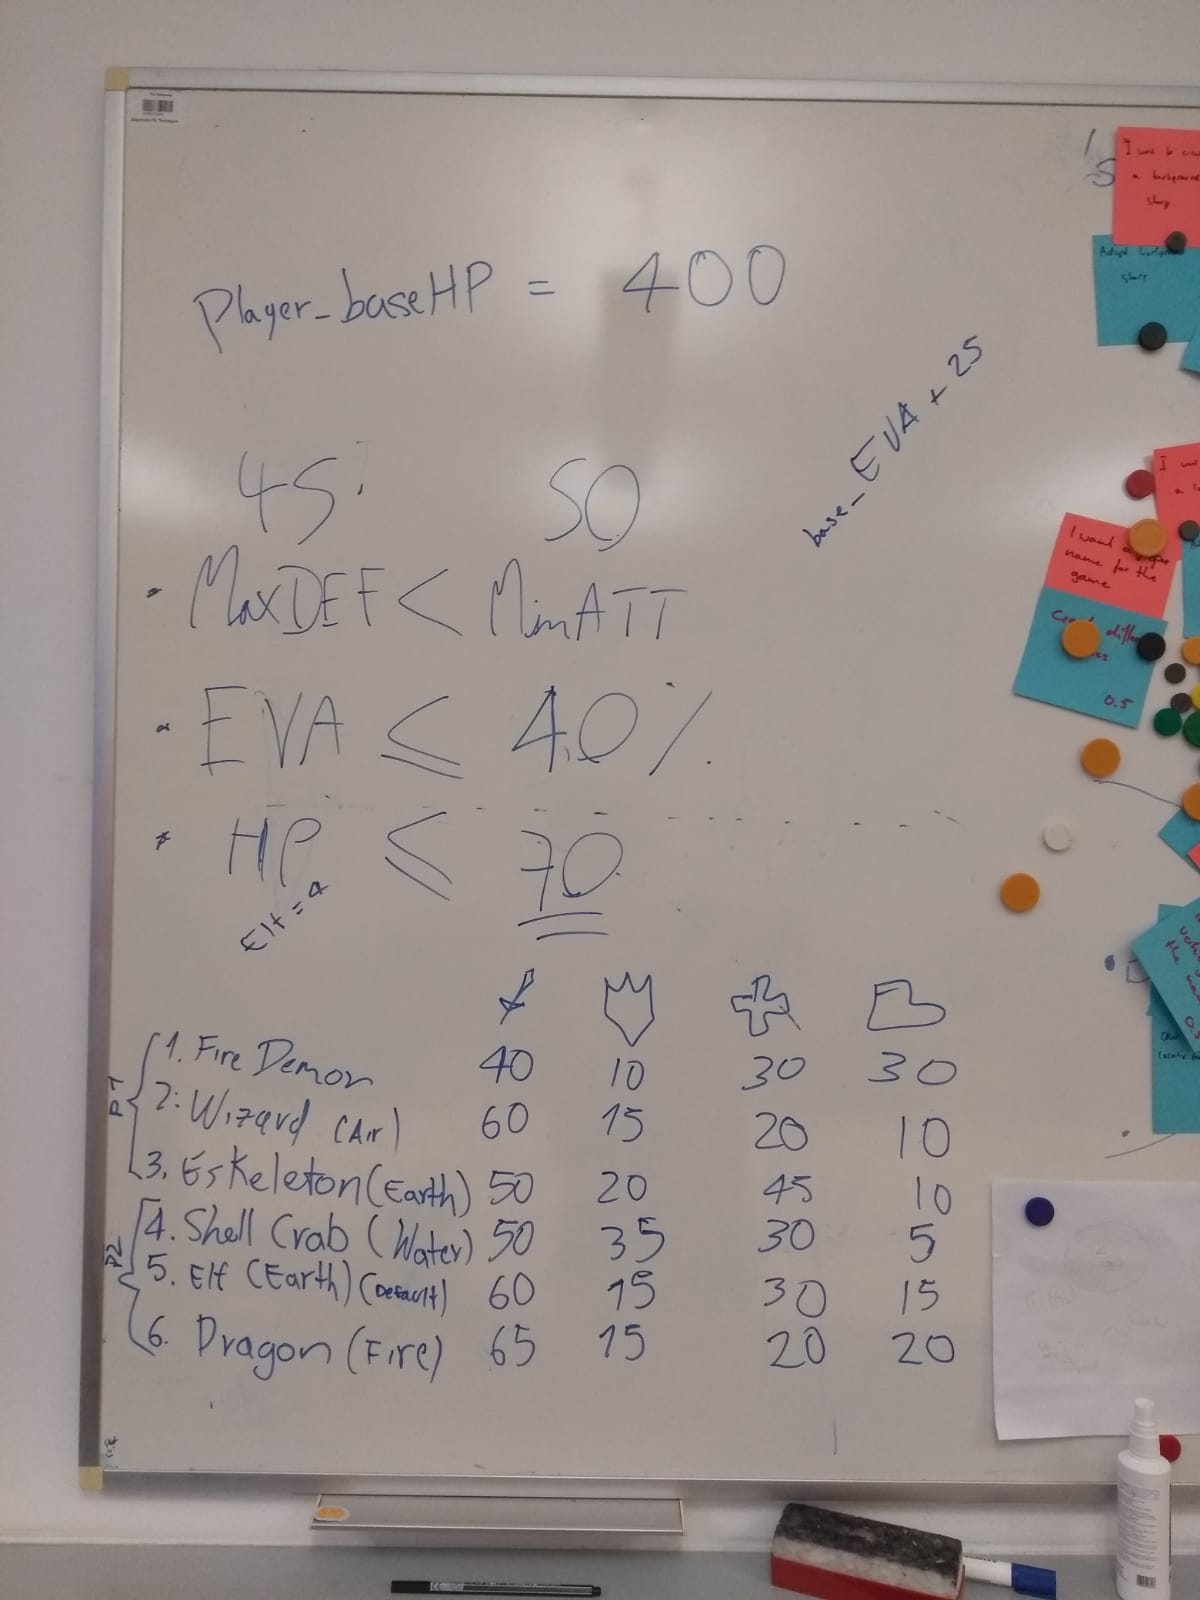 Player_baseHP = 400
base_EVA + 25
45 50
MaxDEF < MinATT
EVA ≤ 40%
HP ≤ 70
Elf = 4
P1
1. Fire Demon 40 10 30 30
2. Wizard (Air) 60 15 20 10
3. Eskeleton (Earth) 50 20 45 10
P2
4. Shell Crab (Water) 50 35 30 5
5. Elf (Earth) (Default) 60 15 30 15
6. Dragon (Fire) 65 15 20 20
I want to
a background
story
story
I want a
name for the
game
0.5